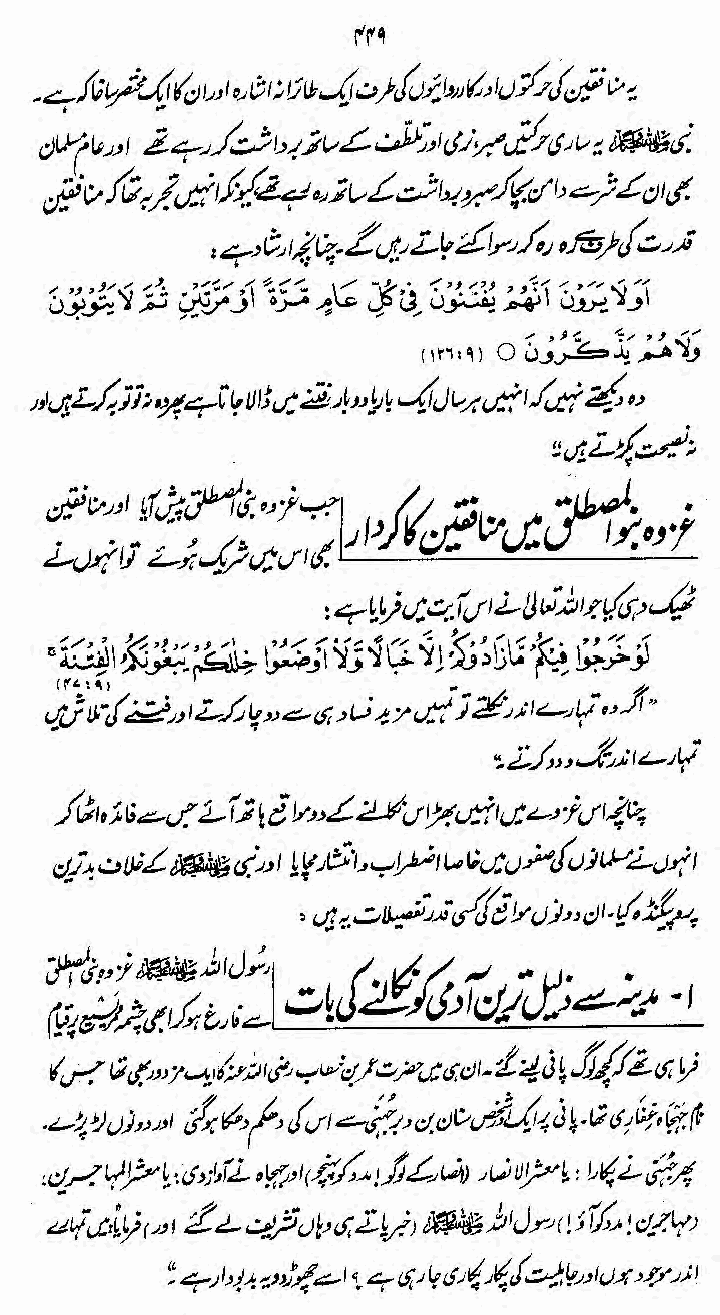 ۴۴۹
یہ منافقین کی حرکتوں اور کارروائیوں کی طرف ایک طائرانہ اشارہ اور ان کا ایک مختصر سا خاکہ ہے۔
نبی ﷺ یہ ساری حرکتیں صبر، نرمی اور تلطّف کے ساتھ برداشت کر رہے تھے اور عام مسلمان
بھی ان کے شر سے دامن بچا کر صبر و برداشت کے ساتھ رہ رہے تھے کیونکہ انہیں تجربہ تھا کہ منافقین
قدرت کی طرف سے رہ رہ کر رسوا کئے جاتے رہیں گے۔ چنانچہ ارشاد ہے :
اَوَلَا يَرَوْنَ اَنَّهُمْ يُفْتَنُوْنَ فِيْ كُلِّ عَامٍ مَّرَّةً اَوْ مَرَّتَيْنِ ثُمَّ لَا يَتُوْبُوْنَ
وَلَا هُمْ يَذَّكَّرُوْنَ ○ (۱۲۶:۹)
وہ دیکھتے نہیں کہ انہیں ہر سال ایک بار یا دو بار فتنے میں ڈالا جاتا ہے پھر وہ نہ تو توبہ کرتے ہیں اور
نہ نصیحت پکڑتے ہیں“
غزوہ بنو المصطلق میں منافقین کا کردار
جب غزوہ بنی المصطلق پیش آیا اور منافقین
بھی اس میں شریک ہُوئے تو انہوں نے
ٹھیک وہی کیا جو اللہ تعالیٰ نے اس آیت میں فرمایا ہے :
لَوْ خَرَجُوْا فِيْكُمْ مَّا زَادُوْكُمْ اِلَّا خَبَالًا وَّلَا۟اَوْضَعُوْا خِلٰلَكُمْ يَبْغُوْنَكُمُ الْفِتْنَةَ ۚ
(۴۷:۹)
”اگر وہ تمہارے اندر نکلتے تو تمہیں مزید فساد ہی سے دوچار کرتے اور فتنے کی تلاش میں
تمہارے اندر تگ و دو کرتے۔“
چنانچہ اس غزوے میں انہیں بھڑاس نکالنے کے دو مواقع ہاتھ آئے جس سے فائدہ اٹھا کر
انہوں نے مسلمانوں کی صفوں میں خاصا اضطراب و انتشار مچایا اور نبی ﷺ کے خلاف بدترین
پروپیگنڈہ کیا۔ ان دونوں مواقع کی کسی قدر تفصیلات یہ ہیں :
۱- مدینہ سے ذلیل ترین آدمی کو نکالنے کی بات
رسُول اللہ ﷺ غزوہ بنی المصطلق
سے فارغ ہو کر ابھی چشمہ مریسیع پر قیام
فرما ہی تھے کہ کچھ لوگ پانی لینے گئے۔ ان ہی میں حضرت عمر بن خطاب رضی اللہ عنہ کا ایک مزدور بھی تھا جس کا
نام جَہجَاہ غِفاری تھا۔ پانی پر ایک اور شخص سنان بن وبر جُہنی سے اس کی دھکم دھکا ہو گئی اور دونوں لڑ پڑے۔
پھر جُہنی نے پکارا : یا معشر الانصار (انصار کے لوگو ! مدد کو پہنچو) اور جہجاہ نے آواز دی : یا معشر المہاجرین :
(مہاجرین ! مدد کو آؤ !) رسول اللہ ﷺ (خبر پاتے ہی وہاں تشریف لے گئے اور) فرمایا میں تمہارے
اندر موجود ہوں اور جاہلیت کی پکار پکاری جا رہی ہے ؟ اسے چھوڑ دو یہ بدبودار ہے۔“